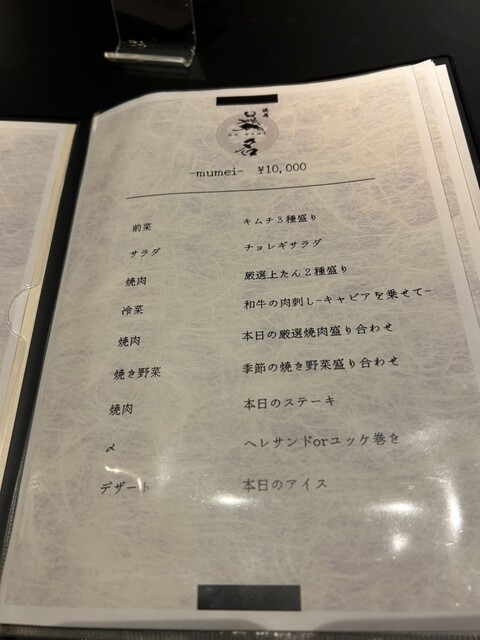 焼肉
無名
-mumei- ¥10,000
前菜 キムチ３種盛り
サラダ チョレギサラダ
焼肉 厳選上たん２種盛り
冷菜 和牛の肉刺し-キャビアを乗せて-
焼肉 本日の厳選焼肉盛り合わせ
焼き野菜 季節の焼き野菜盛り合わせ
焼肉 本日のステーキ
α ヘレサンドorユッケ巻き
デザート 本日のアイス